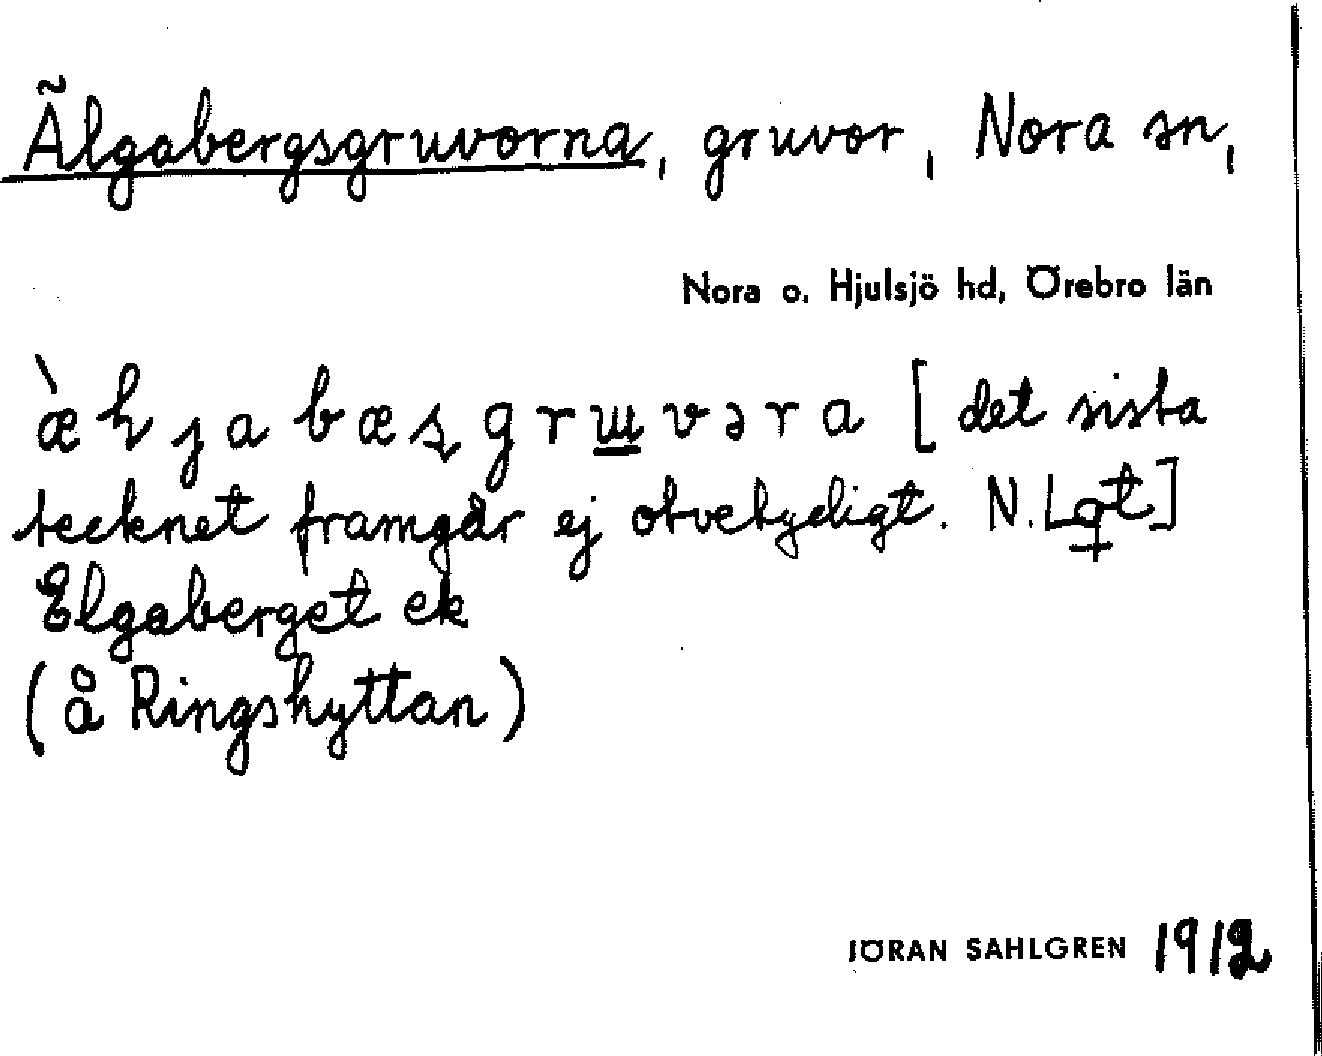 Älgabergsgruvorna, gruvor, Nora sn,
Nora o. Hjulsjö hd, Örebro län
æ̀hjabæs̨grɯ̲vəra [det sista
tecknet framgår ej otvetydigt. N. Lgt]
Elgaberget ek
(å Ringshyttan)
JÖRAN SAHLGREN 1912